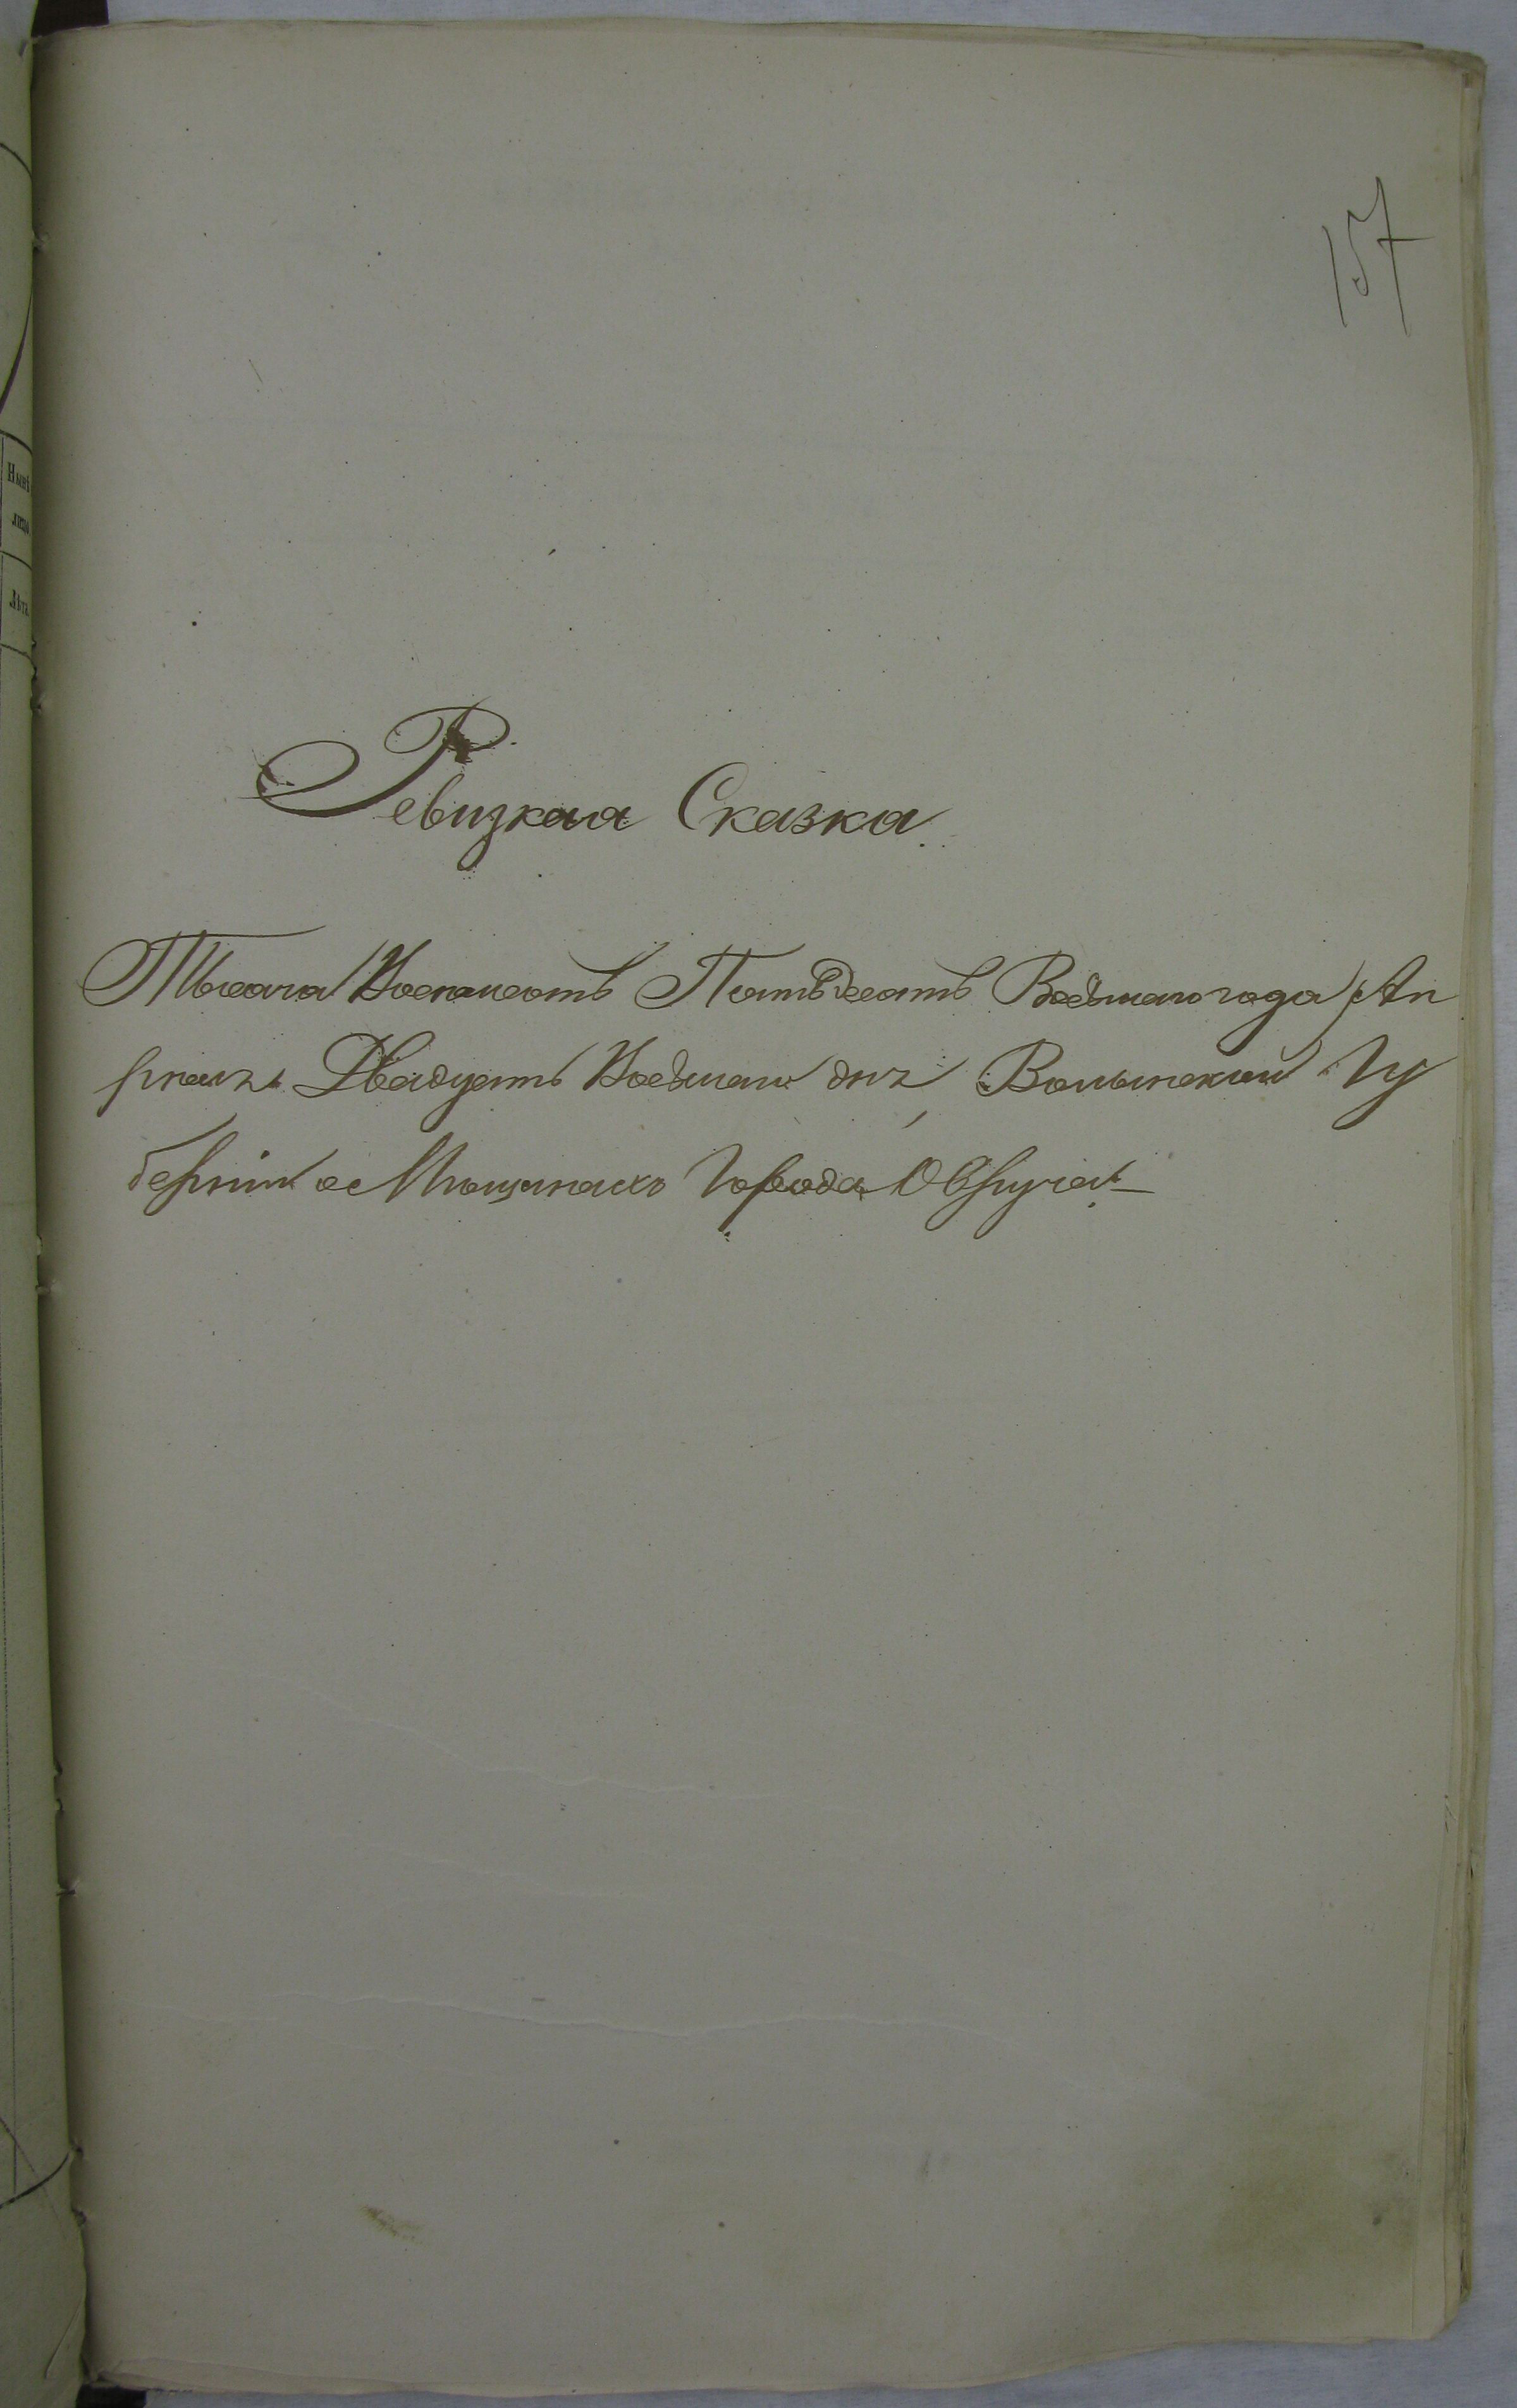 157
Ревизкая Сказка
Тысяча Восемьсотъ Пятьдесятъ Восьмаго года Ап
рѣля Двадцать Восьмаго дня Волынской Гу
берніи о Мѣщанахъ Города Овруча
Нынѣ
лицо
Лѣта